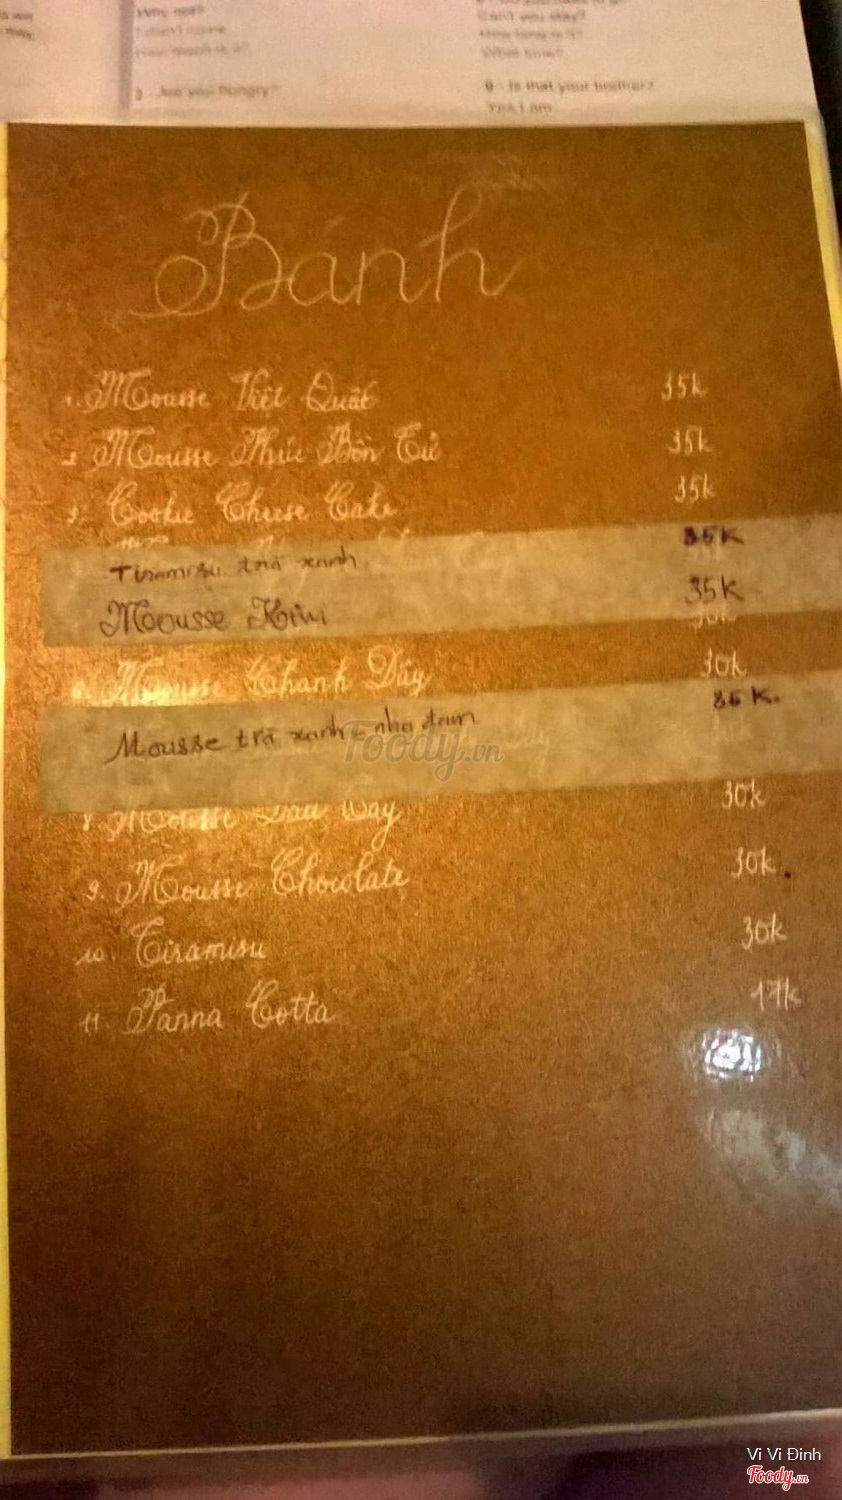 Why not?
Can't you stay?
How long is it?
What time?
3 - Are you hungry?
9 - Is that your brother?
Yes I am
Bánh
1. Mousse Việt Quất 35k
2. Mousse Phúc Bồn Tử 35k
3. Cookie Cheese Cake 35k
Tiramisu trà xanh 35K
Mousse Kiwi 35K
30k
6. Mousse Chanh Dây 30k
Mousse trà xanh - nha đam 35K.
Foody.vn
8. Mousse Dâu Tây 30k
9. Mousse Chocolate 30k.
10. Tiramisu 30k
11. Panna Cotta 17k
Vi Vi Đinh
Foody.vn